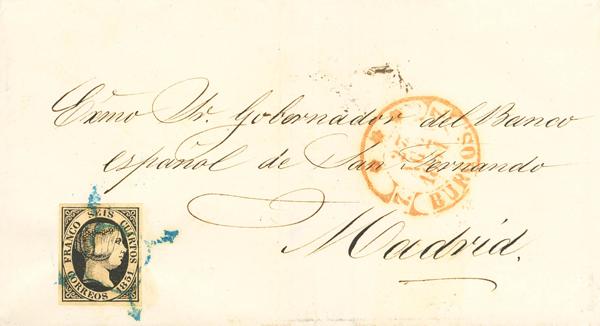 Exmo Sr. Gobernador del Banco
español de San Fernando
Madrid.
BURGOS.
FRANCO SEIS CUARTOS
CORREOS 1851